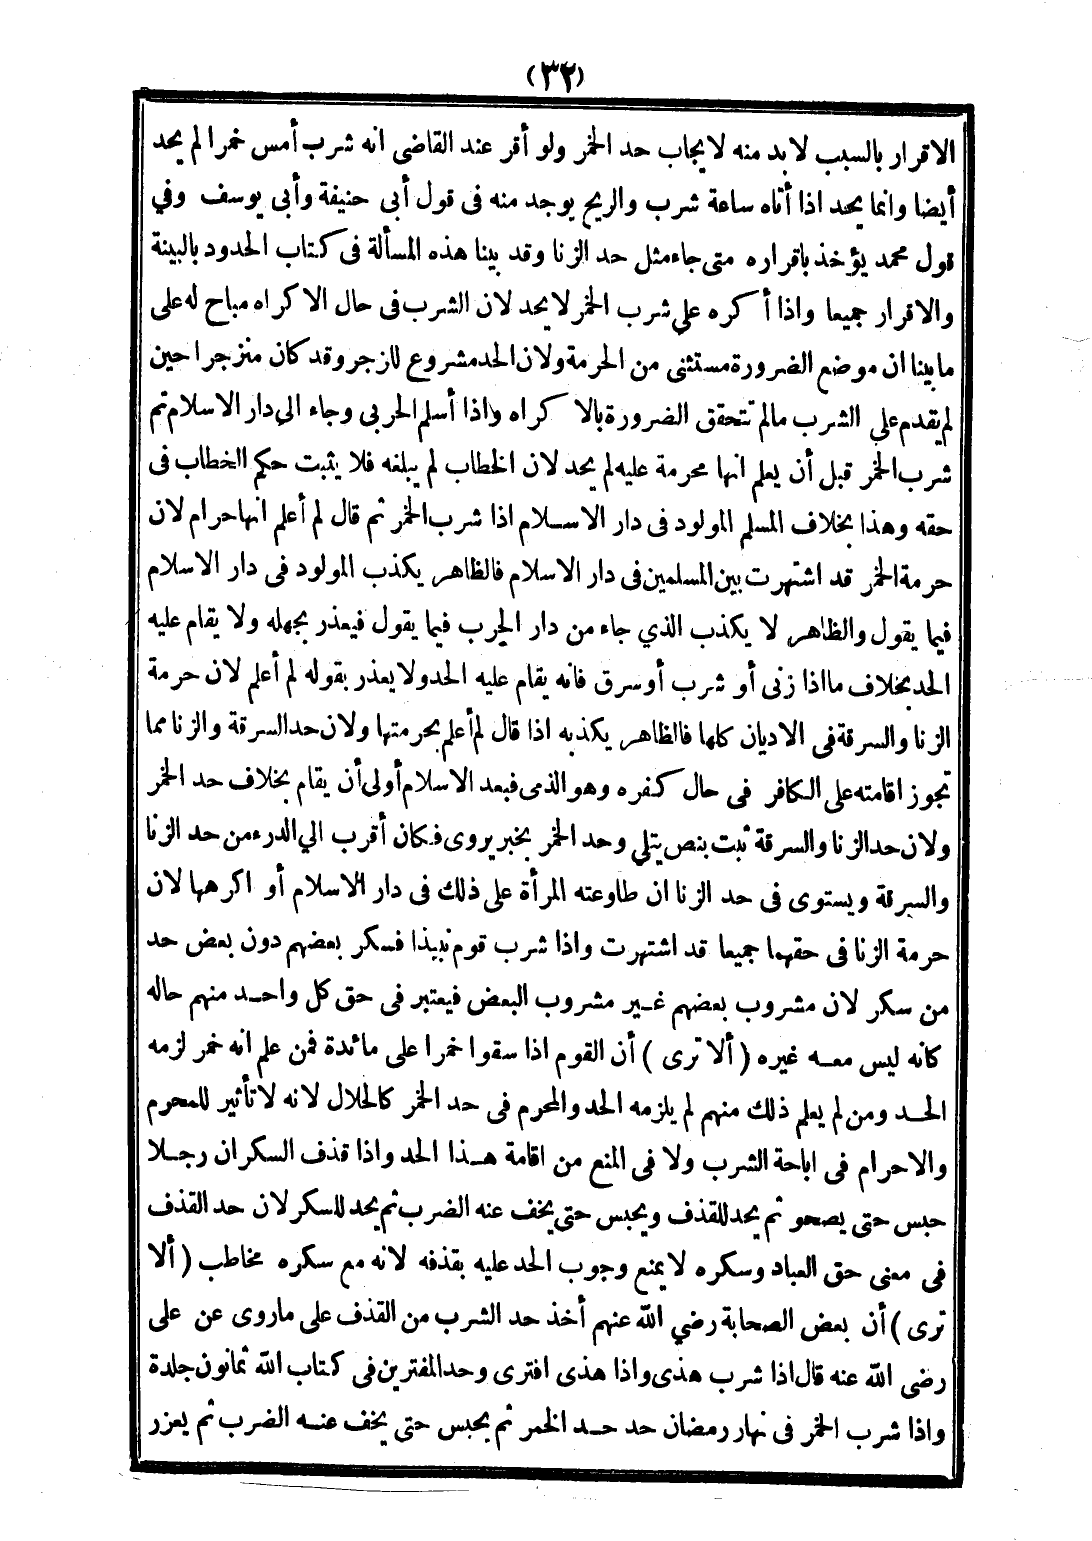 (٣٢)
الاقرار بالسبب لا بد منه لايجاب حد الخمر ولو أقر عند القاضى انه شرب أمس خمرا لم يحد
أيضا وانما يحد اذا أتاه ساعة شرب والريح يوجد منه فى قول أبى حنيفة وأبى يوسف وفي
قول محمد يؤخذ باقراره متى جاء مثل حد الزنا وقد بينا هذه المسألة فى كتاب الحدود بالبينة
والاقرار جميعا واذا أكره علي شرب الخمر لا يحد لان الشرب فى حال الاكراه مباح له على
ما بينا ان موضع الضرورة مستثنى من الحرمة ولان الحد مشروع للزجر وقد كان منزجرا حين
لم يقدم علي الشرب مالم تتحقق الضرورة بالاكراه واذا أسلم الحربى وجاء الي دار الاسلام ثم
شرب الخمر قبل أن يعلم انها محرمة عليه لم يحد لان الخطاب لم يبلغه فلا يثبت حكم الخطاب فى
حقه وهذا بخلاف المسلم المولود فى دار الاسلام اذا شرب الخمر ثم قال لم أعلم انها حرام لان
حرمة الخمر قد اشتهرت بين المسلمين فى دار الاسلام فالظاهر يكذب المولود فى دار الاسلام
فيما يقول والظاهر لا يكذب الذي جاء من دار الحرب فيما يقول فيعذر بجهله ولا يقام عليه
الحد بخلاف ما اذا زنى أو شرب أو سرق فانه يقام عليه الحد ولا يعذر بقوله لم أعلم لان حرمة
الزنا والسرقة فى الاديان كلها فالظاهر يكذبه اذا قال لم أعلم بحرمتها ولان حد السرقة والزنا مما
تجوز اقامته على الكافر فى حال كفره وهو الذمى فبعد الاسلام أولى أن يقام بخلاف حد الخمر
ولان حد الزنا والسرقة ثبت بنص يتلي وحد الخمر بخبر يروى فكان أقرب الي الدرء من حد الزنا
والسرقة ويستوى فى حد الزنا ان طاوعته المرأة على ذلك فى دار الاسلام أو اكرهها لان
حرمة الزنا فى حقهما جميعا قد اشتهرت واذا شرب قوم نبيذا فسكر بعضهم دون بعض حد
من سكر لان مشروب بعضهم غير مشروب البعض فيعتبر فى حق كل واحد منهم حاله
كانه ليس معه غيره ( ألا ترى ) أن القوم اذا سقوا خمرا على مائدة فمن علم انه خمر لزمه
الحد ومن لم يعلم ذلك منهم لم يلزمه الحد والمحرم فى حد الخمر كالحلال لانه لا تأثير للمحرم
والاحرام فى اباحة الشرب ولا فى المنع من اقامة هذا الحد واذا قذف السكران رجلا
حبس حتى يصحو ثم يحد للقذف ويحبس حتى يخف عنه الضرب ثم يحد للسكر لان حد القذف
فى معنى حق العباد وسكره لا يمنع وجوب الحد عليه بقذفه لانه مع سكره مخاطب ( ألا
ترى ) أن بعض الصحابة رضي الله عنهم أخذ حد الشرب من القذف على ما روى عن على
رضى الله عنه قال اذا شرب هذى واذا هذى افترى وحد المفترين فى كتاب الله ثمانون جلدة
واذا شرب الخمر فى نهار رمضان حد حد الخمر ثم يحبس حتى يخف عنه الضرب ثم يعزر